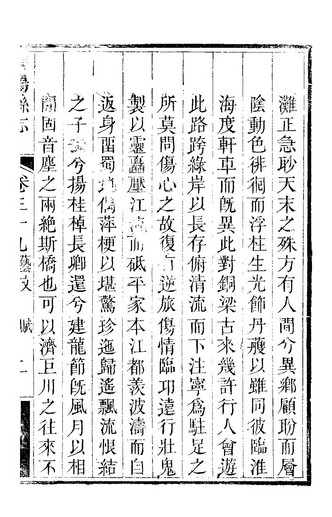 灘正急眇天末之殊方有人間兮異鄉顧盼而層
陰動色徘徊而浮柱生光飾丹雘以雖同彼臨淮
海度軒車而旣異此對銅梁古來幾許行人曾遊
此路跨綠岸以長存俯清流而下注寧爲駐足之
所莫問傷心之故復逆旅傷情臨卭遠行壯鬼
製以靈鼉壓江而砥平家本江都羨波濤而自
返身西蜀偶萍梗以堪驚珍迤歸遙飄流悵結
之子兮揚桂棹長卿還兮建龍節旣風月以相
間固音塵之兩絶斯橋也可以濟巨川之往來不
陽縣志 卷三十九藝文 賦 二